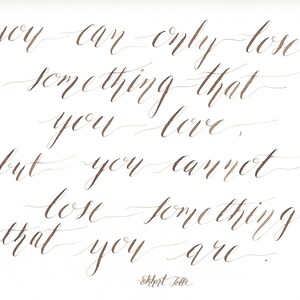 you can only lose
something that
you love,
but you cannot
lose something
that you are.
-Eckhart Tolle